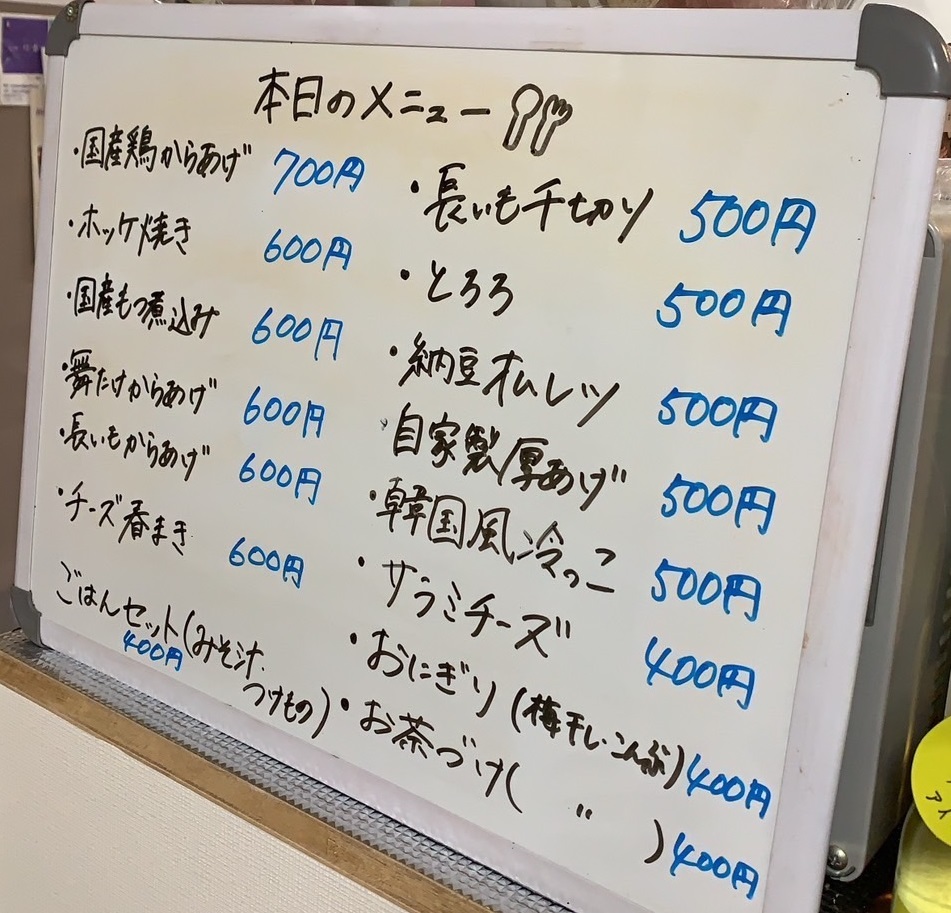 本日のメニュー
・国産鶏からあげ 700円
・ホッケ焼き 600円
・国産もつ煮込み 600円
・舞たけからあげ 600円
・長いもからあげ 600円
・チーズ春まき 600円
ごはんセット(みそ汁、
400円
つけもの)
・長いも千切り 500円
・とろろ 500円
・納豆オムレツ 500円
・自家製厚あげ 500円
・韓国風冷っこ 500円
・サラミチーズ 400円
・おにぎり(梅干し・こんぶ) 400円
・お茶づけ( 〃 ) 400円